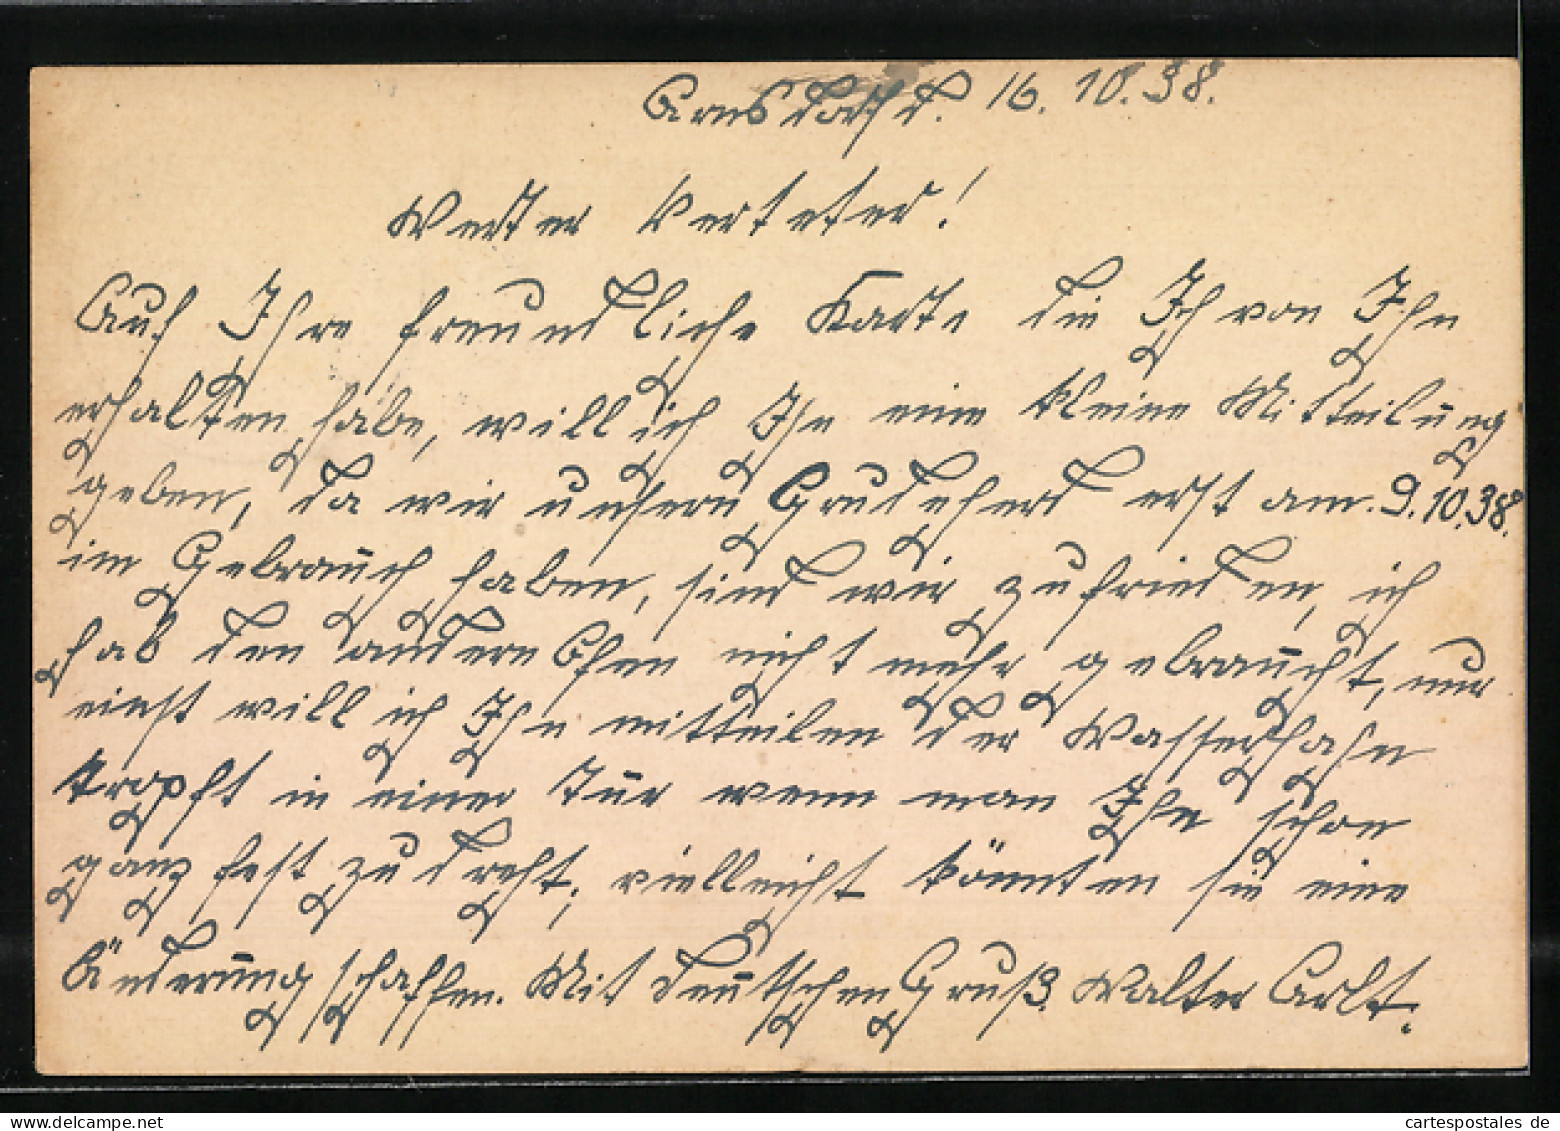 Arnsdorf d. 16. 10. 38.
Werter Vertreter!
Auf Ihre freundliche Karte die Ich von Ihn
erhalten habe, will ich Ihn eine kleine Mitteilung
geben, da wir unsern Grudeherd erst am 9.10.38.
im Gebrauch haben, sind wir zufrieden, ich
hab den andern Ofen nicht mehr gebraucht, nur
einst will ich Ihn mitteilen der Wasserhahn
tropft in einer Tur wenn man Ihn schon
ganz fest zudreht, vielleicht könnten sie eine
Änderung schaffen. Mit deutschen Gruß Walter Carlt.
cartespostales de